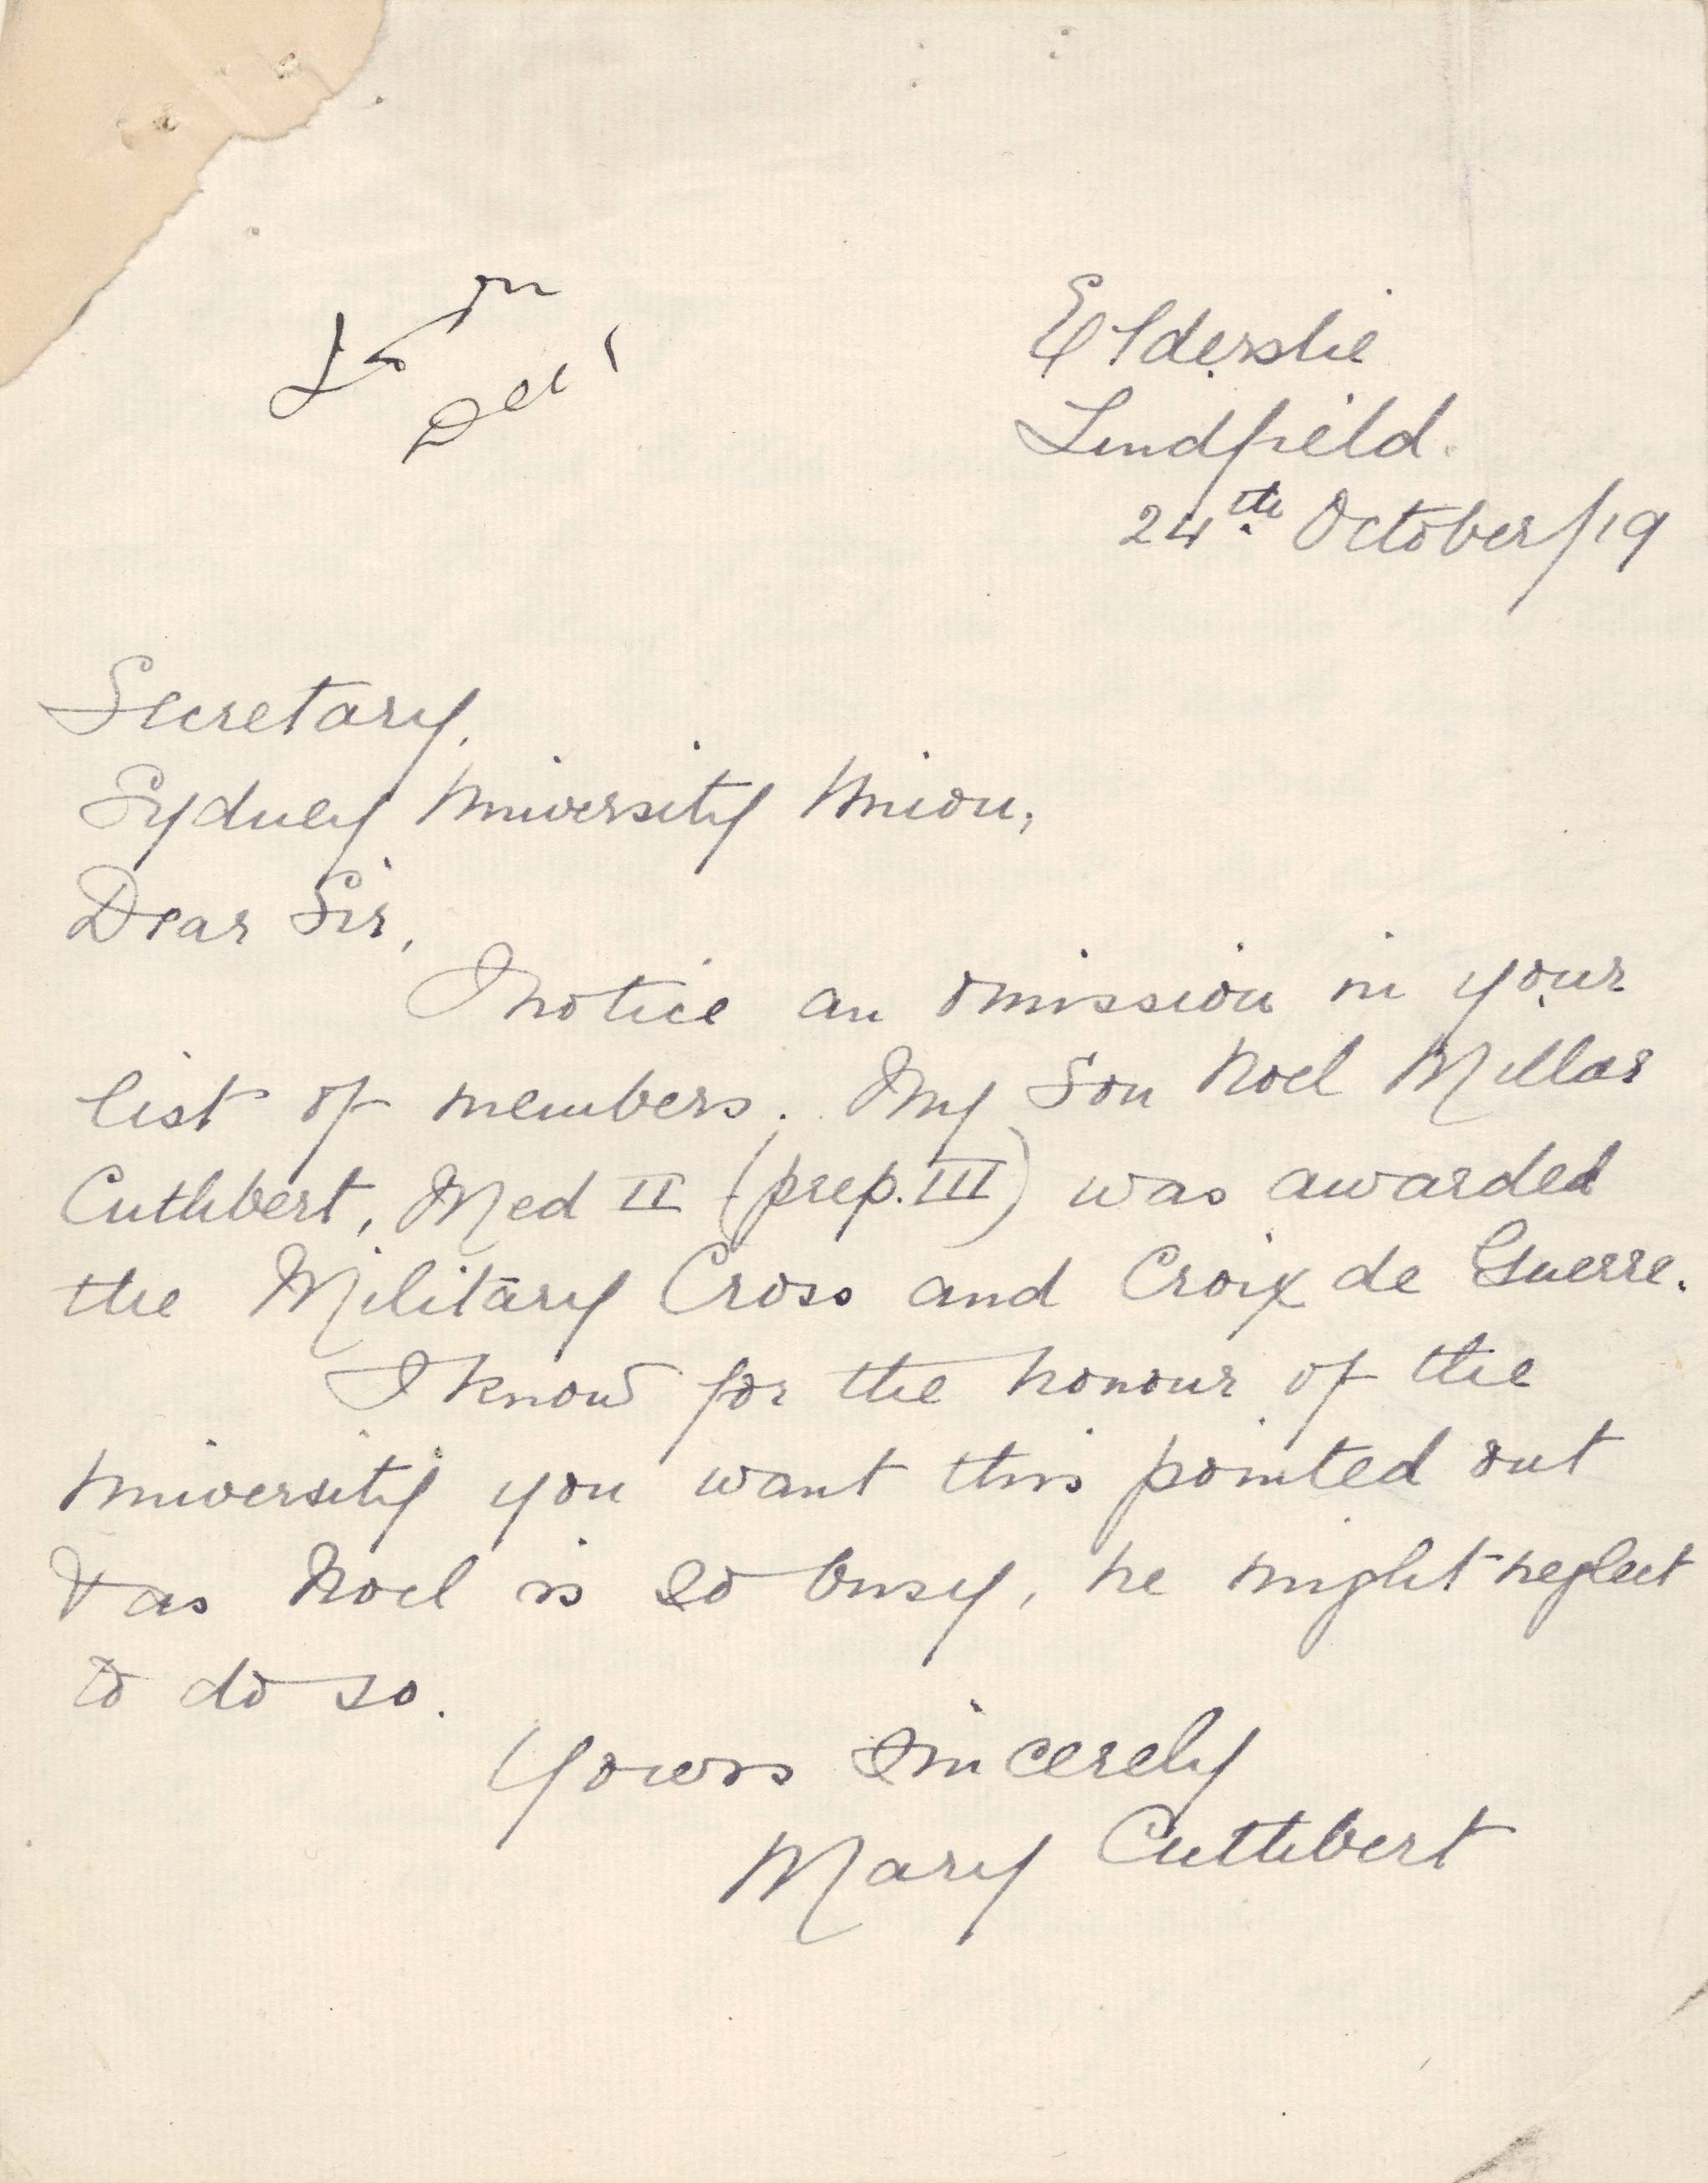 Elderslie
Lindfield.
24th October/19
Secretary,
Sydney University Union,
Dear Sir,
I notice an omission in your
list of members. My Son Noel Millar
Cuthbert, Med II (prep. III) was awarded
the Military Cross and Croix de Guerre.
I know for the honour of the
University you want this pointed out
& as Noel is so busy, he might neglect
to do so.
Yours sincerely
Mary Cuthbert